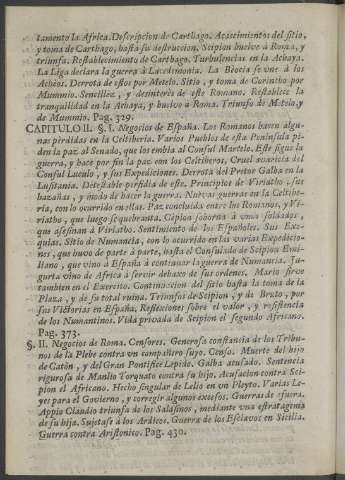 tamento la Africa. Descripcion de Carthago. Acaecimientos del sitio,
y toma de Carthago, hasta su destruccion. Scipion buelve à Roma, y
triunfa. Restablecimiento de Carthago. Turbulencias en la Achaya.
La Liga declara la guerra à Lacedemonia. La Bèocia se une à los
Achèos. Derrota de estos por Metelo. Sitio, y toma de Corintho por
Mummio. Sencillèz, y desinterès de este Romano. Restablece la
tranquilidad en la Achaya, y buelve à Roma. Triunfo de Metelo, y
de Mummio. Pag. 329.
CAPITULO II. §. I. Negocios de España. Los Romanos hacen algu-
nas pèrdidas en la Celtiberia. Varios Pueblos de esta Peninsula pi-
den la paz al Senado, que los embia al Consul Marcelo. Este sigue la
guerra, y hace por fin la paz con los Celtiberos. Cruel avaricia del
Consul Luculo, y sus Expediciones. Derrota del Pretor Galba en la
Lusitania. Detestable perfidia de este. Principios de Viriatho, sus
hazañas, y modo de hacer la guerra. Nuevas guerras en la Celtibe-
ria, con lo ocurrido en ellas. Paz concluida entre los Romanos, y Vi-
riatho, que luego se quebranta. Cèpion soborna à unos soldados,
que asesinan à Viriatho. Sentimiento de los Españoles. Sus Exe-
quias. Sitio de Numancia, con lo ocurrido en las varias Expedicio-
nes, que huvo de parte à parte, hasta el Consulado de Scipion Emi-
liano, que vino à España à continuar la guerra de Numancia. Ju-
gurta vino de Africa à servir debaxo de sus ordenes. Mario sirve
tambien en el Exercito. Continuacion del sitio hasta la toma de la
Plaza, y de su total ruina. Triunfos de Scipion, y de Bruto, por
sus Victorias en España. Reflexiones sobre el valor, y resistencia
de los Numantinos. Vida privada de Scipion el segundo Africano.
Pag. 373.
§. II. Negocios de Roma. Censores. Generosa constancia de los Tribu-
nos de la Plebe contra un compañero suyo. Censo. Muerte del hijo
de Catòn, y del Gran Pontifice Lepido. Galba acusado. Sentencia
rigurosa de Manlio Torquato contra su hijo. Acusacion contra Sci-
pion el Africano. Hecho singular de Lelio en un Pleyto. Varias Le-
yes para el Govierno, y corregir algunos excesos. Guerras de afuera.
Appio Claudio triunfa de los Salasinos, mediante una estratagema
de su hija. Sujetase à los Ardicos. Guerra de los Esclavos en Sicilia.
Guerra contra Aristonico. Pag. 430.